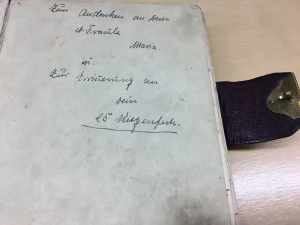 Zum Andenken an Deine
Maria
u.
Zur Erinnerung an
dein
25 Wiegenfeste.